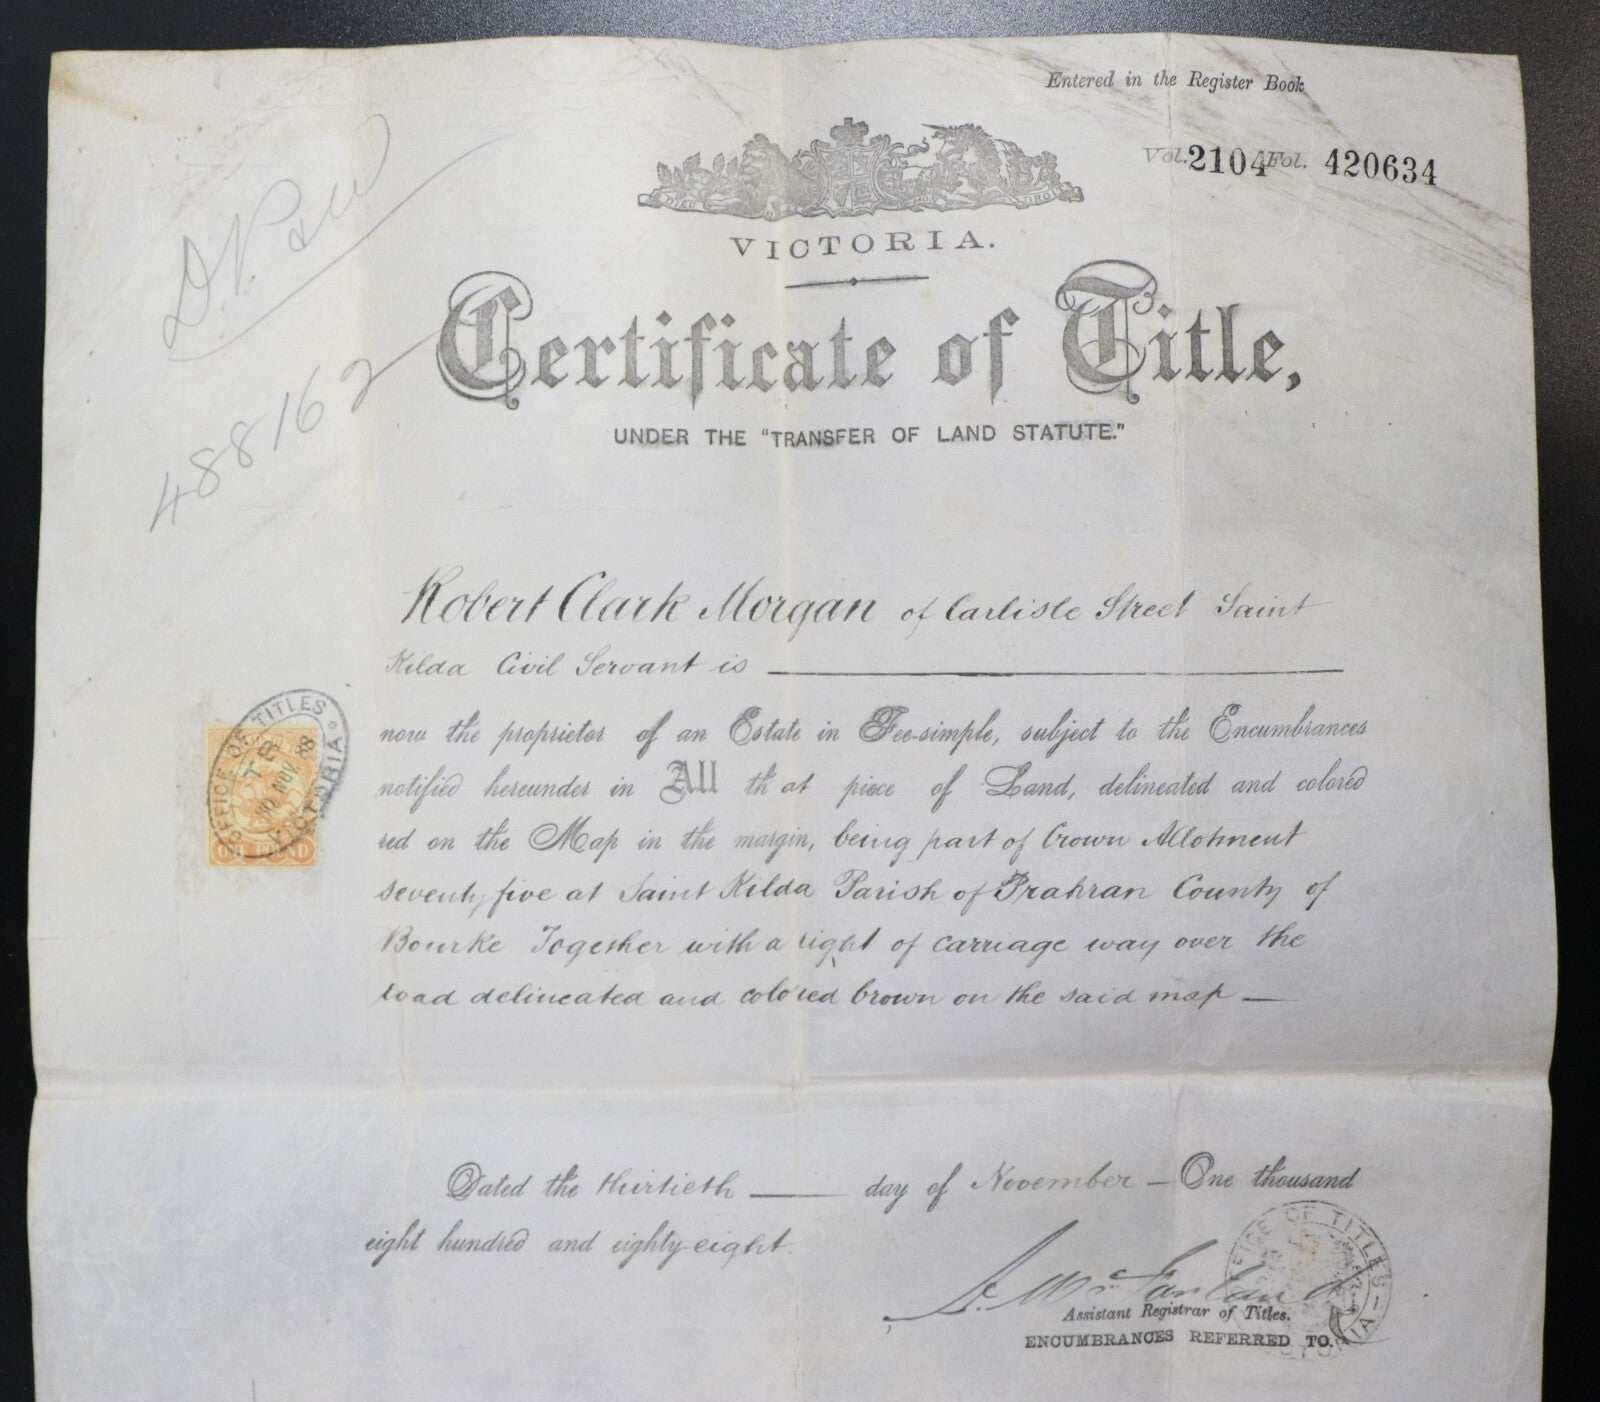 Entered in the Register Book
Vol. 2104 Fol. 420634
DIEU MON DROIT
VICTORIA.
Certificate of Title,
UNDER THE "TRANSFER OF LAND STATUTE."
488162
Robert Clark Morgan of Carlisle Street Saint
Kilda Civil Servant is
now the proprietor of an Estate in Fee-simple, subject to the Encumbrances
notified hereunder in All that piece of Land, delineated and colored
red on the Map in the margin, being part of Crown Allotment
seventy five at Saint Kilda Parish of Prahran County of
Bourke Together with a right of carriage way over the
road delineated and colored brown on the said map —
OFFICE OF TITLES
NOV. 88
VICTORIA
ONE POUND
Dated the thirtieth — day of November — One thousand
eight hundred and eighty-eight.
OFFICE OF TITLES
Assistant Registrar of Titles.
ENCUMBRANCES REFERRED TO.